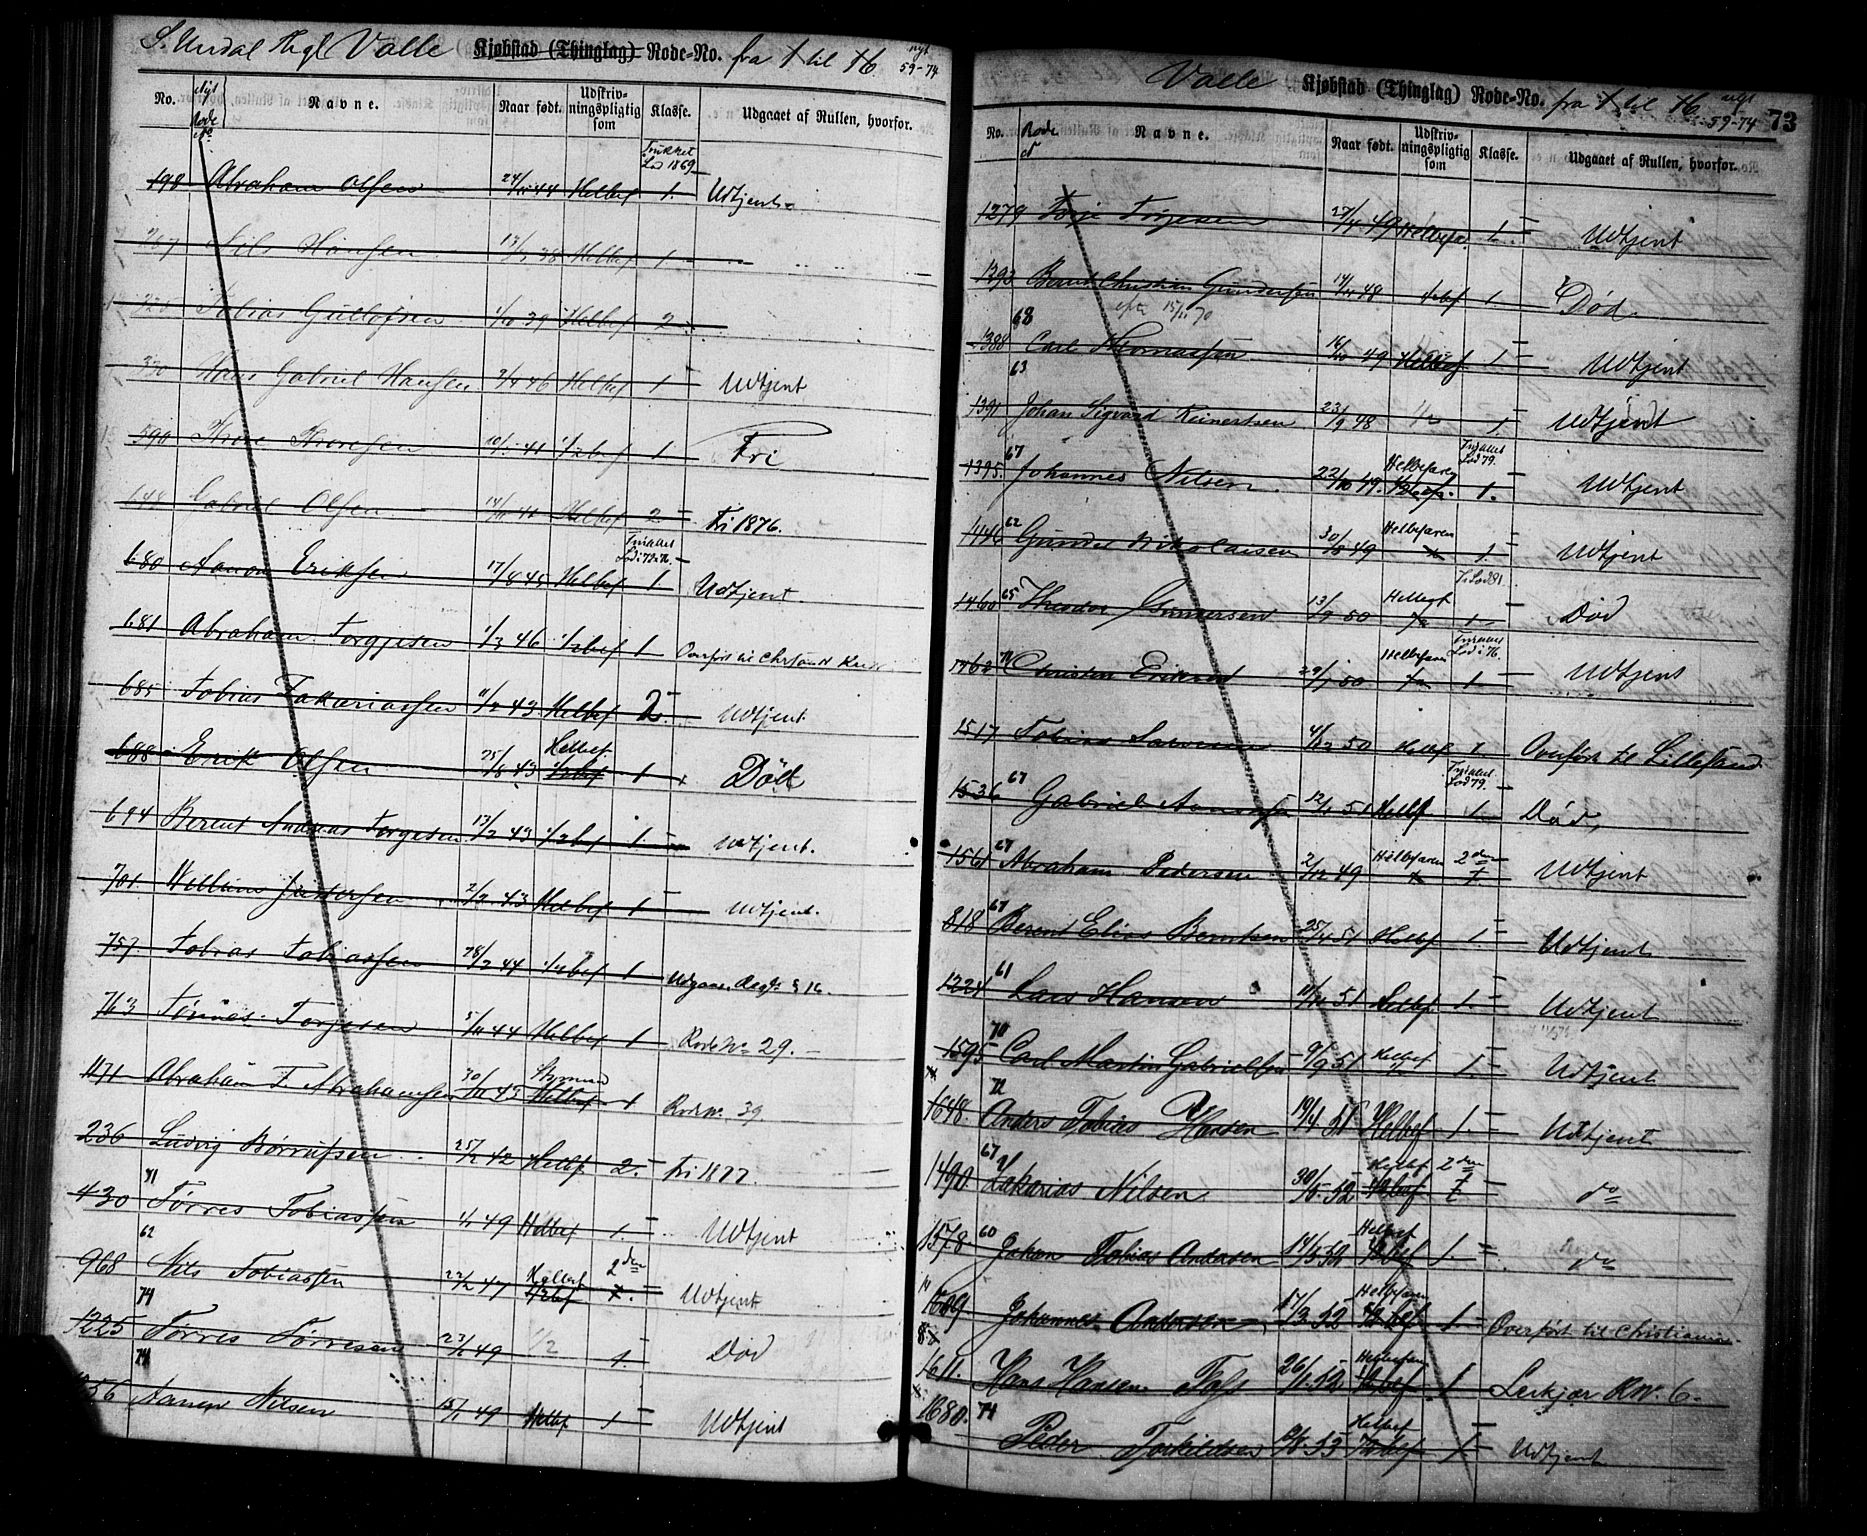 S. Undal Thgl Valle Kjøbstad (Thinglag) Rode-No. fra 1 til 16 nyt 59-74
No. Nyt Rode No Navne. Naar født. Udskriv-ningspligtig som Klasse. Udgaaet af Rullen, hvorfor.
Trukket Lod 1869
198 Abraham Olsen 24/11 44 Helbef 1. Udtjent
267 Nils Hansen 13/7 38 Helbef 1
320 Tobias Gullofsen 1/10 39 Helbef 2
330 Hans Gabriel Hansen 2/4 46 Helbef 1 Udtjent
590 Thore Thoresen 10/5 41 1/2bef 1 Fri
648 Gabriel Olsen 14/11 41 Helbef 2 Fri 1876.
680 Aanon Eriksen 17/8 45 Helbef 1. Udtjent
681 Abraham Torgjesen 1/3 46 1/2bef 1
685 Tobias Zakariassen 11/2 43 Helbef 2 Udtjent
688 Erik Olsen 25/8 43 Helbef 1/2bef 1 Död
694 Berent Andreas Torgesen 13/2 43 1/2bef 1 Udtjent.
701 Willum 2/2 43 Helbef 1 Udtjent.
757. Tobias Tobiassen 28/2 44 1/2bef 1
763 Tönnes Torjesen 5/11 44 Helbef 1 Rode No 29.
1171 Abraham T. Abrahamsen 30/11 43 Helbef 1 Rode No. 39
236 Ludvig Børrufsen 25/2 42 Helbef 2. Fri 1877
71
430 Tørres Tobiassen 1/1 49 Helbef 1. Udtjent
62
968 Nils Tobiassen 22/2 47 Helbef 1/2bef 2den 1. Udtjent
74
1225 Tørres Tørresen 23/6 49 1/2 1. Död
74
56 Aanen Nilsen 15/1 49 Helbef 1 Udtjent
Valle Kjøbstad (Thinglag) Rode-No. fra 1 til 16 nyt 59-74 73
No. Rode Navne. Naar født. Udskriv-ningspligtig som Klasse. Udgaaet af Rullen, hvorfor.
1279 Terje Torjesen 27/4 49 Helbefa 1. Udtjent
1393 Berent Christian Gundersen 14/11 48 1/2bef 1 Död.
68
1388 Carl Thomassen 16/10 49 Helbef 1 Udtjent
63
1391 Johan Sigvard Reinertsen 23/9 48 1/2 1 Udtjent
67 Trukket Lod 79.
1395. Johannes Nilsen 22/10 49. Helbefaren 1. Udtjent
1446 62 Gunder Nikolaisen 30/8 49 Helbefaren 1 Udtjent
1460 65 Theodor Gunnersen 13/9 50 1 Död
1462 71 Christen Eriksen 29/1 50 Helbefaren 1 Udtjent
1517 Tobias Salvesen 4/12 50 Helbef 1 Overført til Lillesand
Trukket Lod 79.
1536 67 Gabriel Aanonsen 12/1 51 Helbef 1. Död,
1561 67 Abraham Pedersen 2/12 49 Helbefaren 2den 1. Udtjent
818 67 Berent Elias Berntsen 25/4 51 Helbef 1. Udtjent
1224 61 Lars Hansen 11/11 51 Helbef 1. Udtjent
1595 70 Carl Martin Gabrielsen 9/9 51 Helbef 1. Udtjent
72
1648. Anders Tobias Hansen 19/4 51 Helbef 1. Udtjent
67
1490. Zakarias Nilsen 30/5 52 Helbef 1/2bef 2den 1. do
1578. 60 Johan Tobias Andersen 14/5 52 Helbef 1/2bef 1 do
1609 Johannes Andersen 17/3 52 Helbefaren 1/2bef 1 Overført til Christiania
1611. Hans Hansen Talg 26/1 52 Helbefaren 1/2bef 1
1680. 74 Peder Torkildsen 12/8 53 Helbef 1/2bef 1 Udtjent